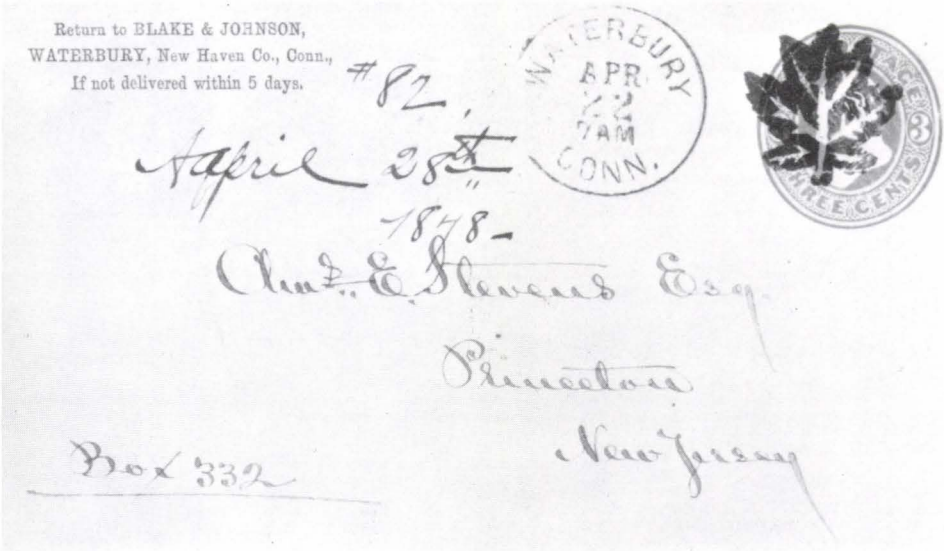 Return to BLAKE & JOHNSON,
WATERBURY, New Haven Co., Conn.,
If not delivered within 5 days.
#82.
April 28th
1848
WATERBURY
APR
22
7AM
CONN.
THREE CENTS
3
Chas. E. Stevens Esq.
Princeton
New Jersey
Box 332